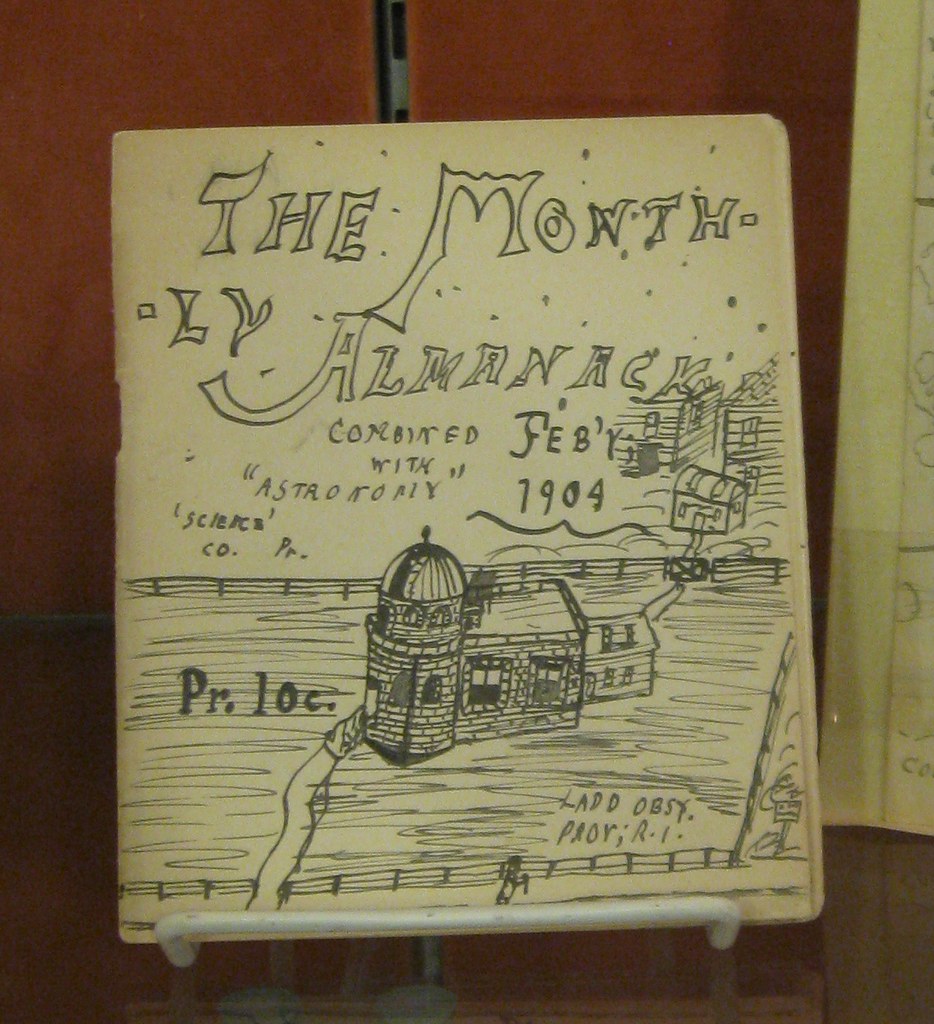 THE MONTH-
-LY ALMANACK
COMBINED
WITH
"ASTRONOMY"
FEB'Y.
1904
'SCIENCE'
CO. Pr.
Pr. 10c.
LADD OBSY.
PROV; R.I.